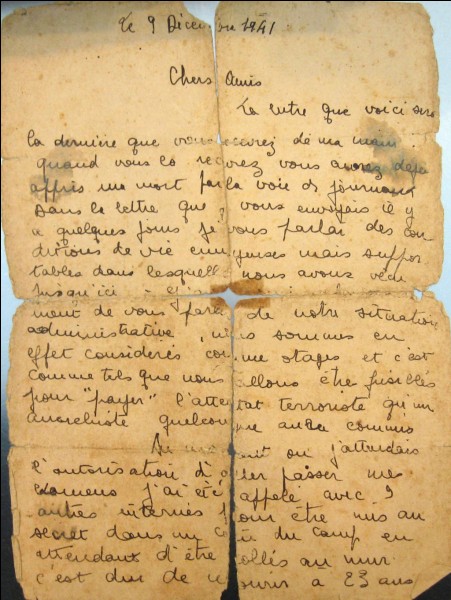 Le 9 Décembre 1941
Chers Amis
La lettre que voici sera
la dernière que vous recevrez de ma main
quand vous la recevrez vous aurez déjà
appris ma mort par la voie des journaux
Dans la lettre que je vous envoyais il y
a quelques jours je vous parlais des con
ditions de vie ennuyeuses mais suppor
tables dans lesquelles nous avons vécu
jusqu'ici
ment de vous parler de notre situation
administrative, nous sommes en
effet considérés comme otages et c'est
comme tels que nous allons être fusillés
pour "payer" l'attentat terroriste qu'un
anarchiste quelconque aura commis
Au moment ou j'attendais
l'autorisation d'aller passer mes
examens j'ai été appelé avec 3
autres internés pour être mis au
secret dans un du camp en
attendant d'être collés au mur
c'est dur de mourir a 23 ans